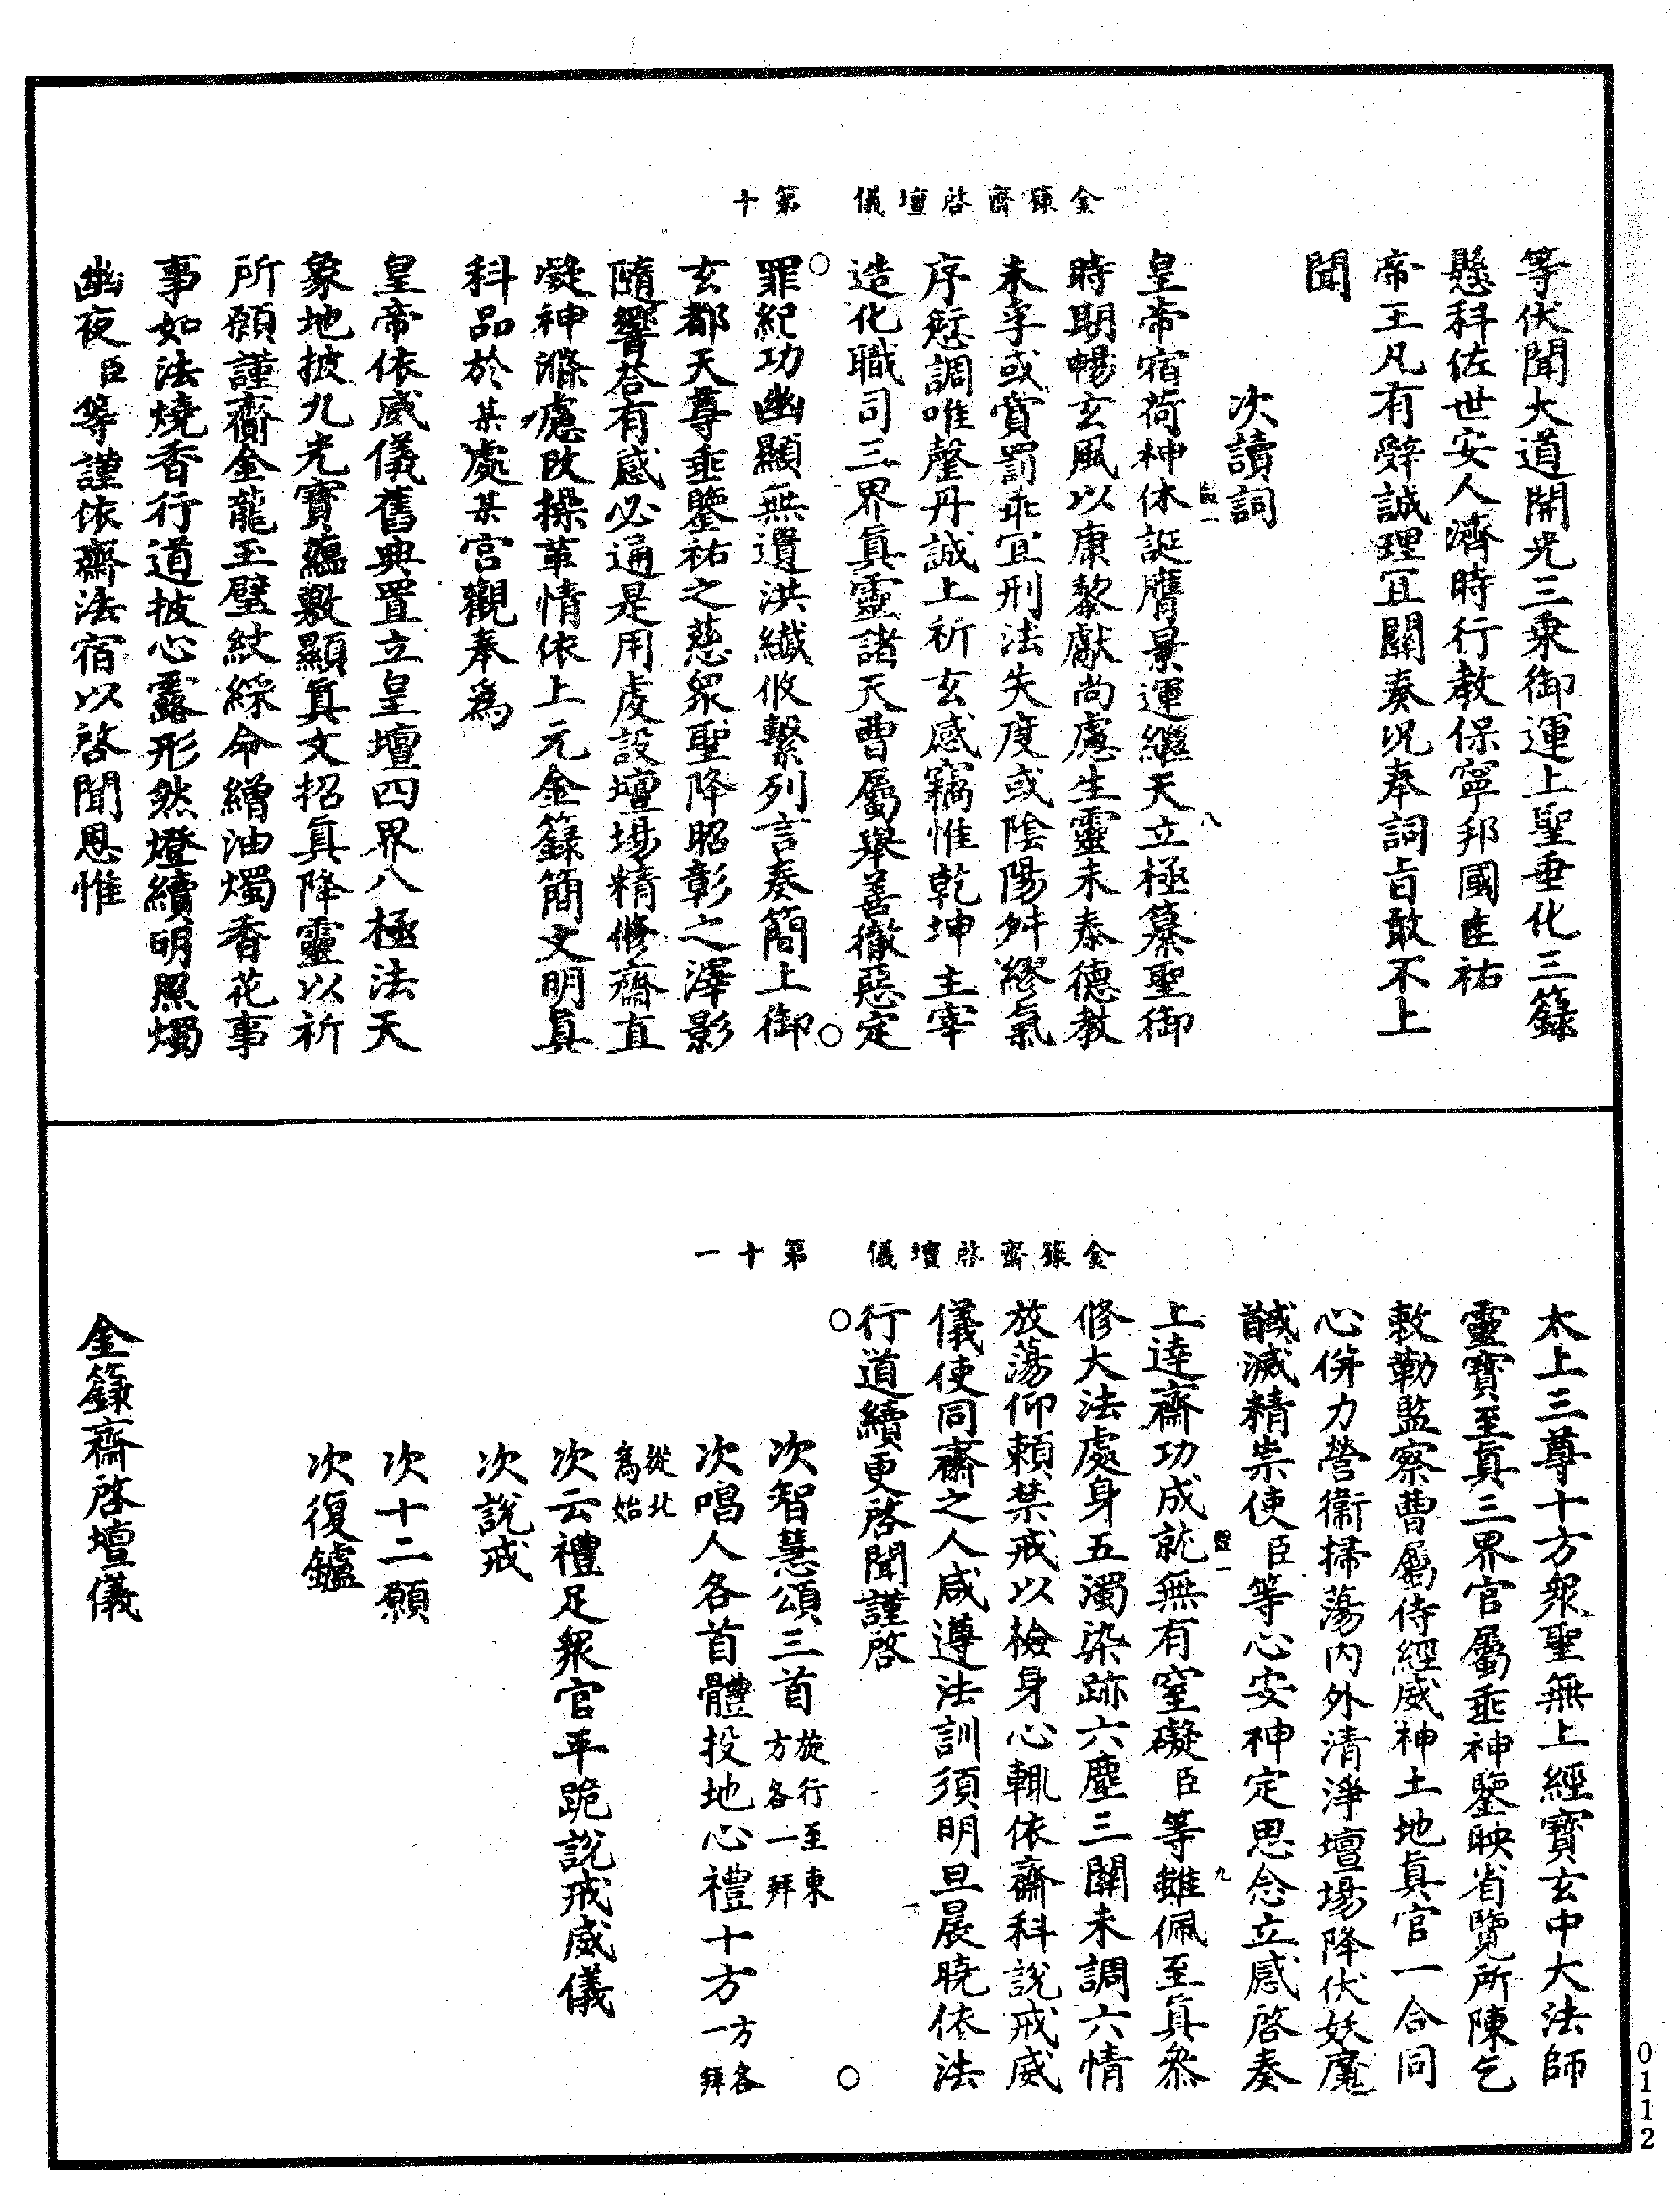 金籙齋啓壇儀　第十
等伏聞大道開光三乘御運上聖垂化三籙
懸科佐世安人濟時行教保寧邦國匡祐
帝王凡有辭誠理宜關奏況奉詞旨敢不上
聞
次讀詞
皇帝宿荷神休誕膺景運繼天立極纂聖御
時期暢玄風以康黎獻尚慮生靈未泰德教
未孚或賞罰乖宜刑法失度或陰陽舛繆氣
序愆調唯罄丹誠上祈玄感竊惟乾坤主宰
造化職司三界眞靈諸天曹屬舉善徹惡定
罪紀功幽顯無遺洪纖攸繫列言奏簡上御
玄都天尊垂鑒祐之慈衆聖降昭彰之澤影
隨響荅有感必通是用虔設壇場精修齋直
凝神滌慮改操革情依上元金籙簡文明眞
科品於某處某宮觀奉爲
皇帝依威儀舊典置立皇壇四界八極法天
象地披九光寶蘊敷顯眞文招眞降靈以祈
所願謹齎金龍玉璧紋綵命繒油燭香花事
事如法燒香行道披心露形然燈續明照燭
幽夜臣等謹依齋法宿以啓聞恩惟
八
金籙齋啓壇儀　第十一
太上三尊十方衆聖無上經寶玄中大法師
靈寶至眞三界官屬垂神鑒映省覽所陳乞
敕勒監察曹屬侍經威神土地眞官一合同
心併力營衞掃蕩内外清淨壇場降伏妖魔
馘滅精祟使臣等心安神定思念立感啓奏
上達齋功成就無有窒礙臣等雖佩至眞叅
修大法處身五濁染跡六塵三關未調六情
放蕩仰賴禁戒以檢身心輒依齋科說戒威
儀使同齋之人咸遵法訓須明旦晨曉依法
行道續更啓聞謹啓
次智慧頌三首旋行至東方各一拜
次唱人各首體投地心禮十方一方各一拜
從北爲始
次云禮足衆官平跪說戒威儀
次說戒
次十二願
次復鑪
金籙齋啓壇儀
九
0112